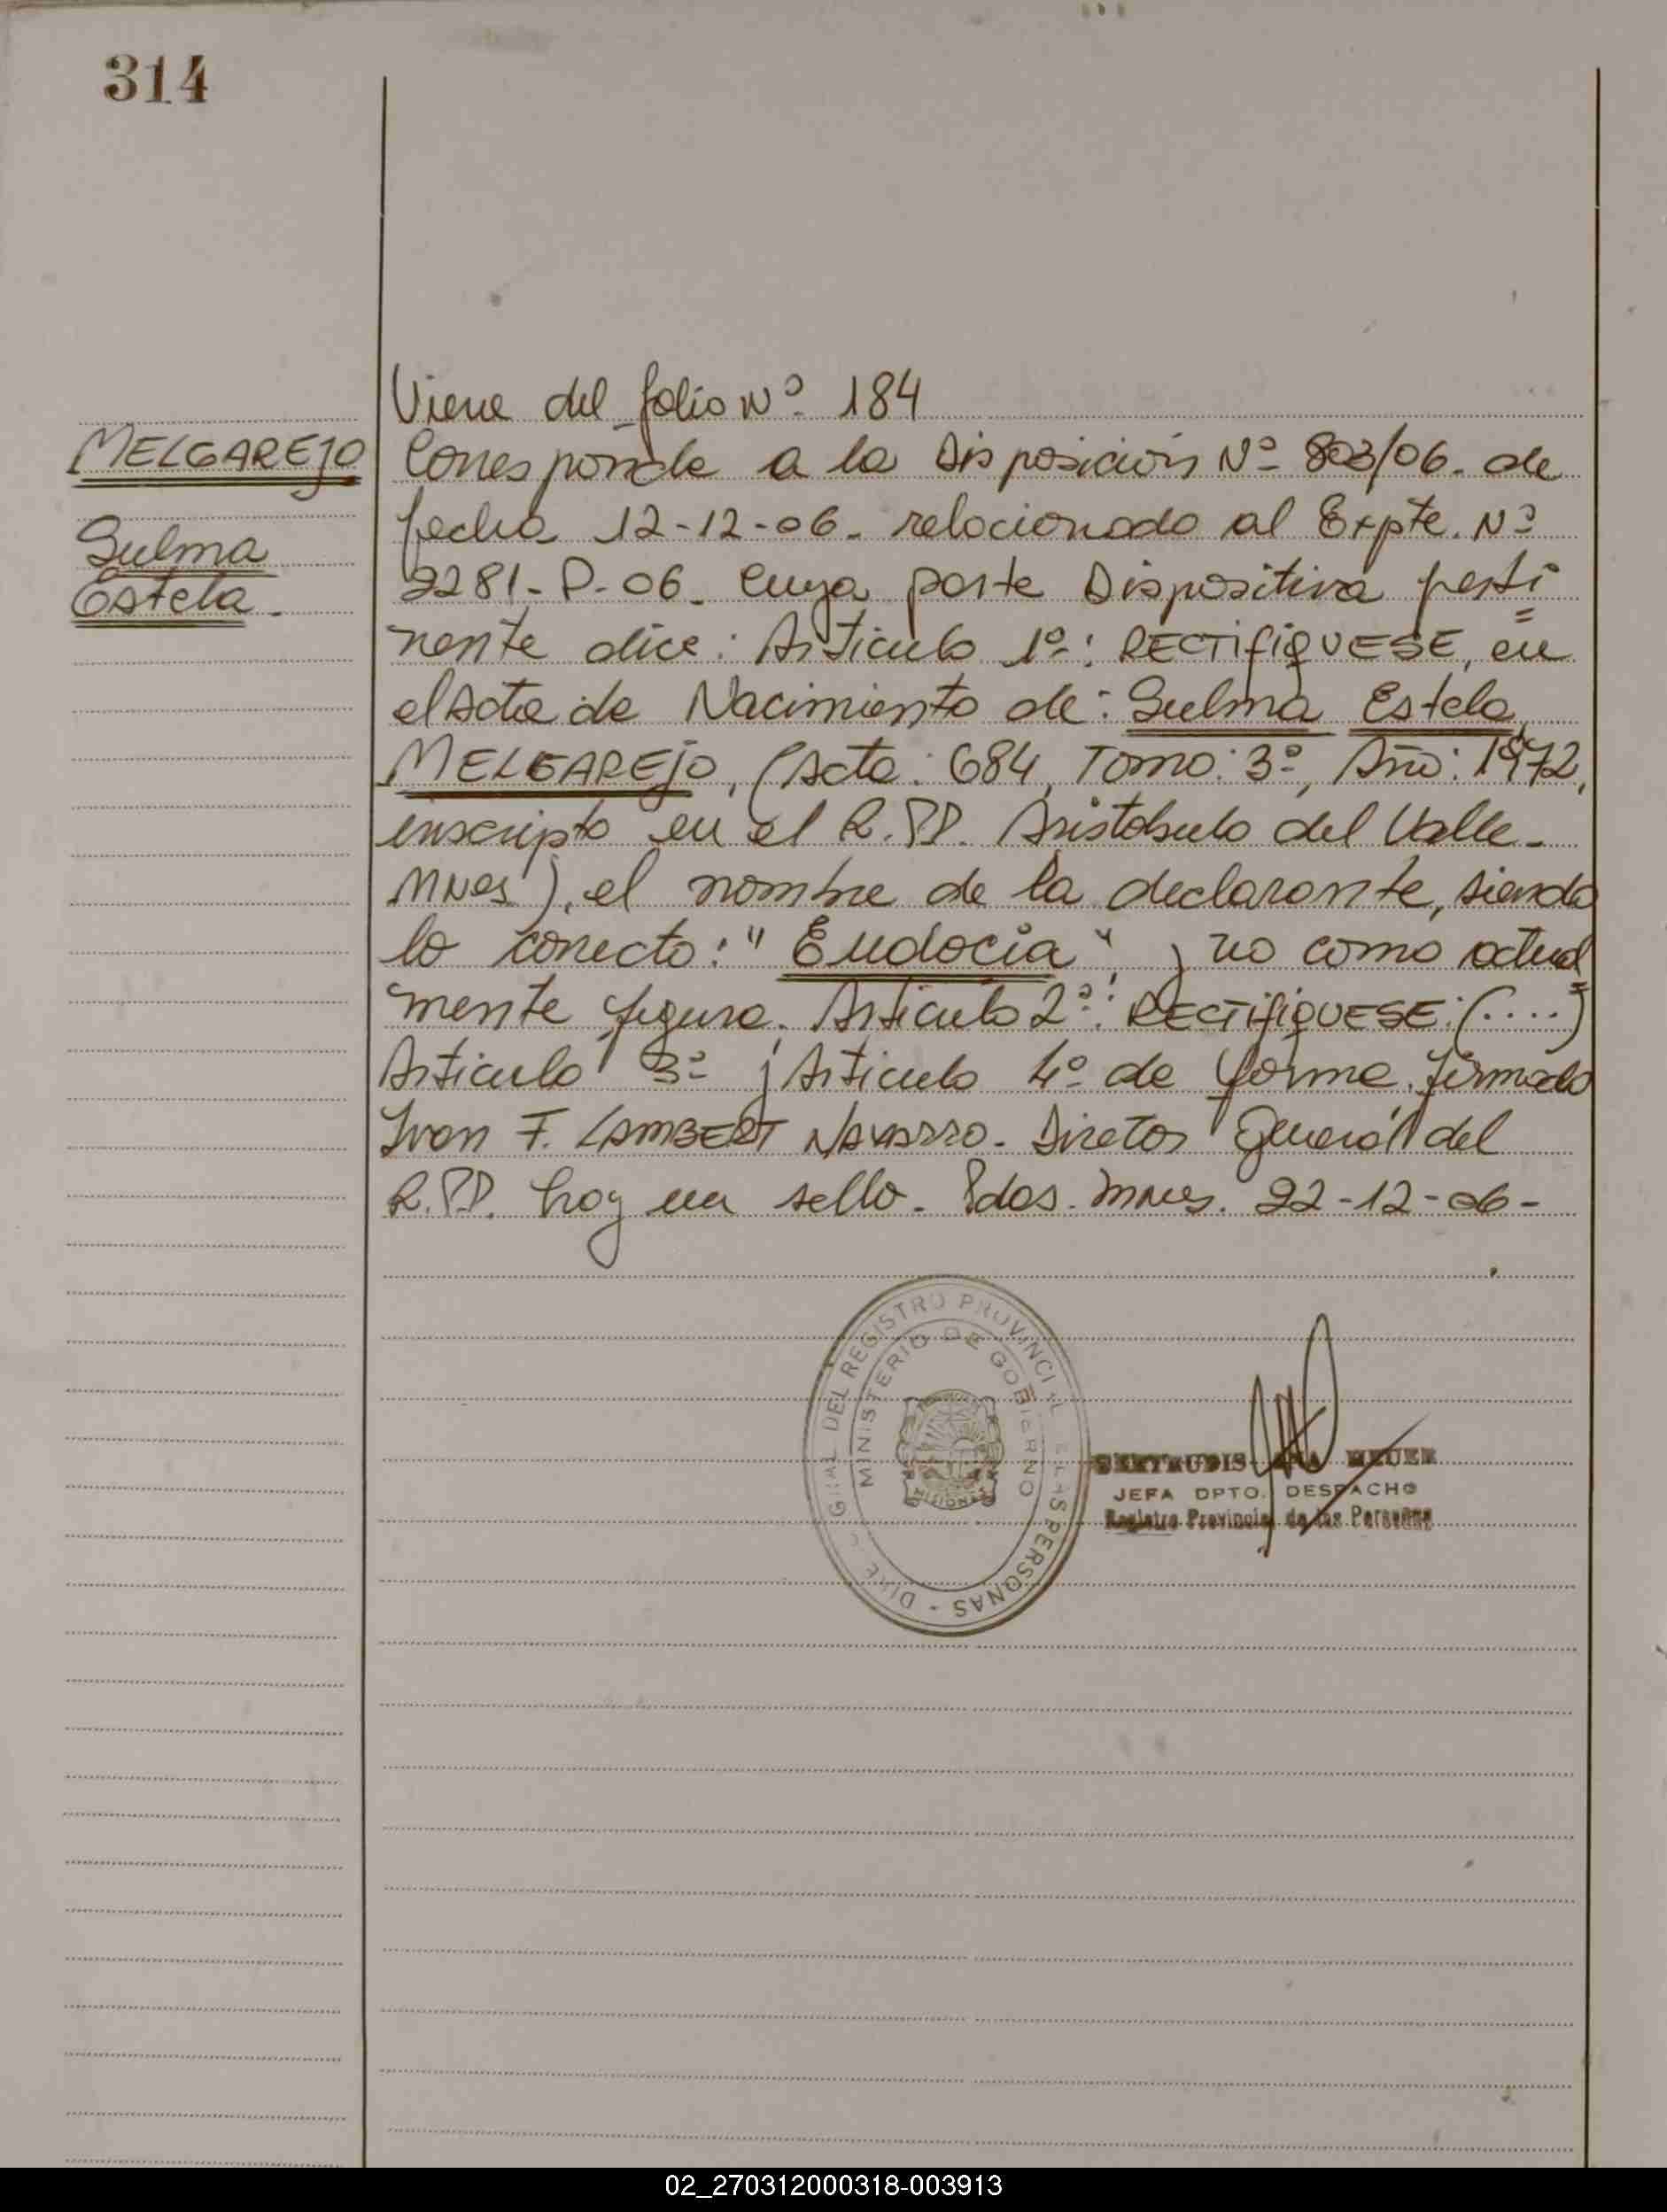 314
Viene del folio Nº 184
MELGAREJO
Sulma
Estela.
Corresponde a la Disposición Nº 803/06. de
fecha 12-12-06. relacionado al Expte. Nº
2281-P-06. Cuya parte Dispositiva perti
nente dice: Articulo 1º: RECTIFIQUESE, en
el Acta de Nacimiento de: Sulma Estela
MELGAREJO, (Acta: 684, Tomo: 3º, Año: 1972,
inscripto en el R.PP. Aristobulo del Valle-
MNes), el nombre de la declarante, siendo
lo correcto: "Eudocia", y no como actual
mente figura. Articulo 2º: RECTIFIQUESE: (....)
Articulo 3º y Articulo 4º de forma. firmado
Ivan F. LAMBERT NAVARRO. Diretor General del
R.PP. hay un sello. Pdas. Mnes. 22-12-06-
GRAL DEL REGISTRO PROVINCIAL LAS PERSONAS - DIRE
MINISTERIO DE GOBIERNO
MISIONES
GERTRUDIS MEUER
JEFA DPTO. DESPACHO
Registro Provincial de las Personas
02_270312000318-003913